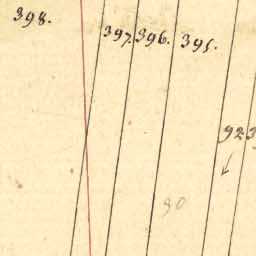 398.
397. 396. 395.
923
90